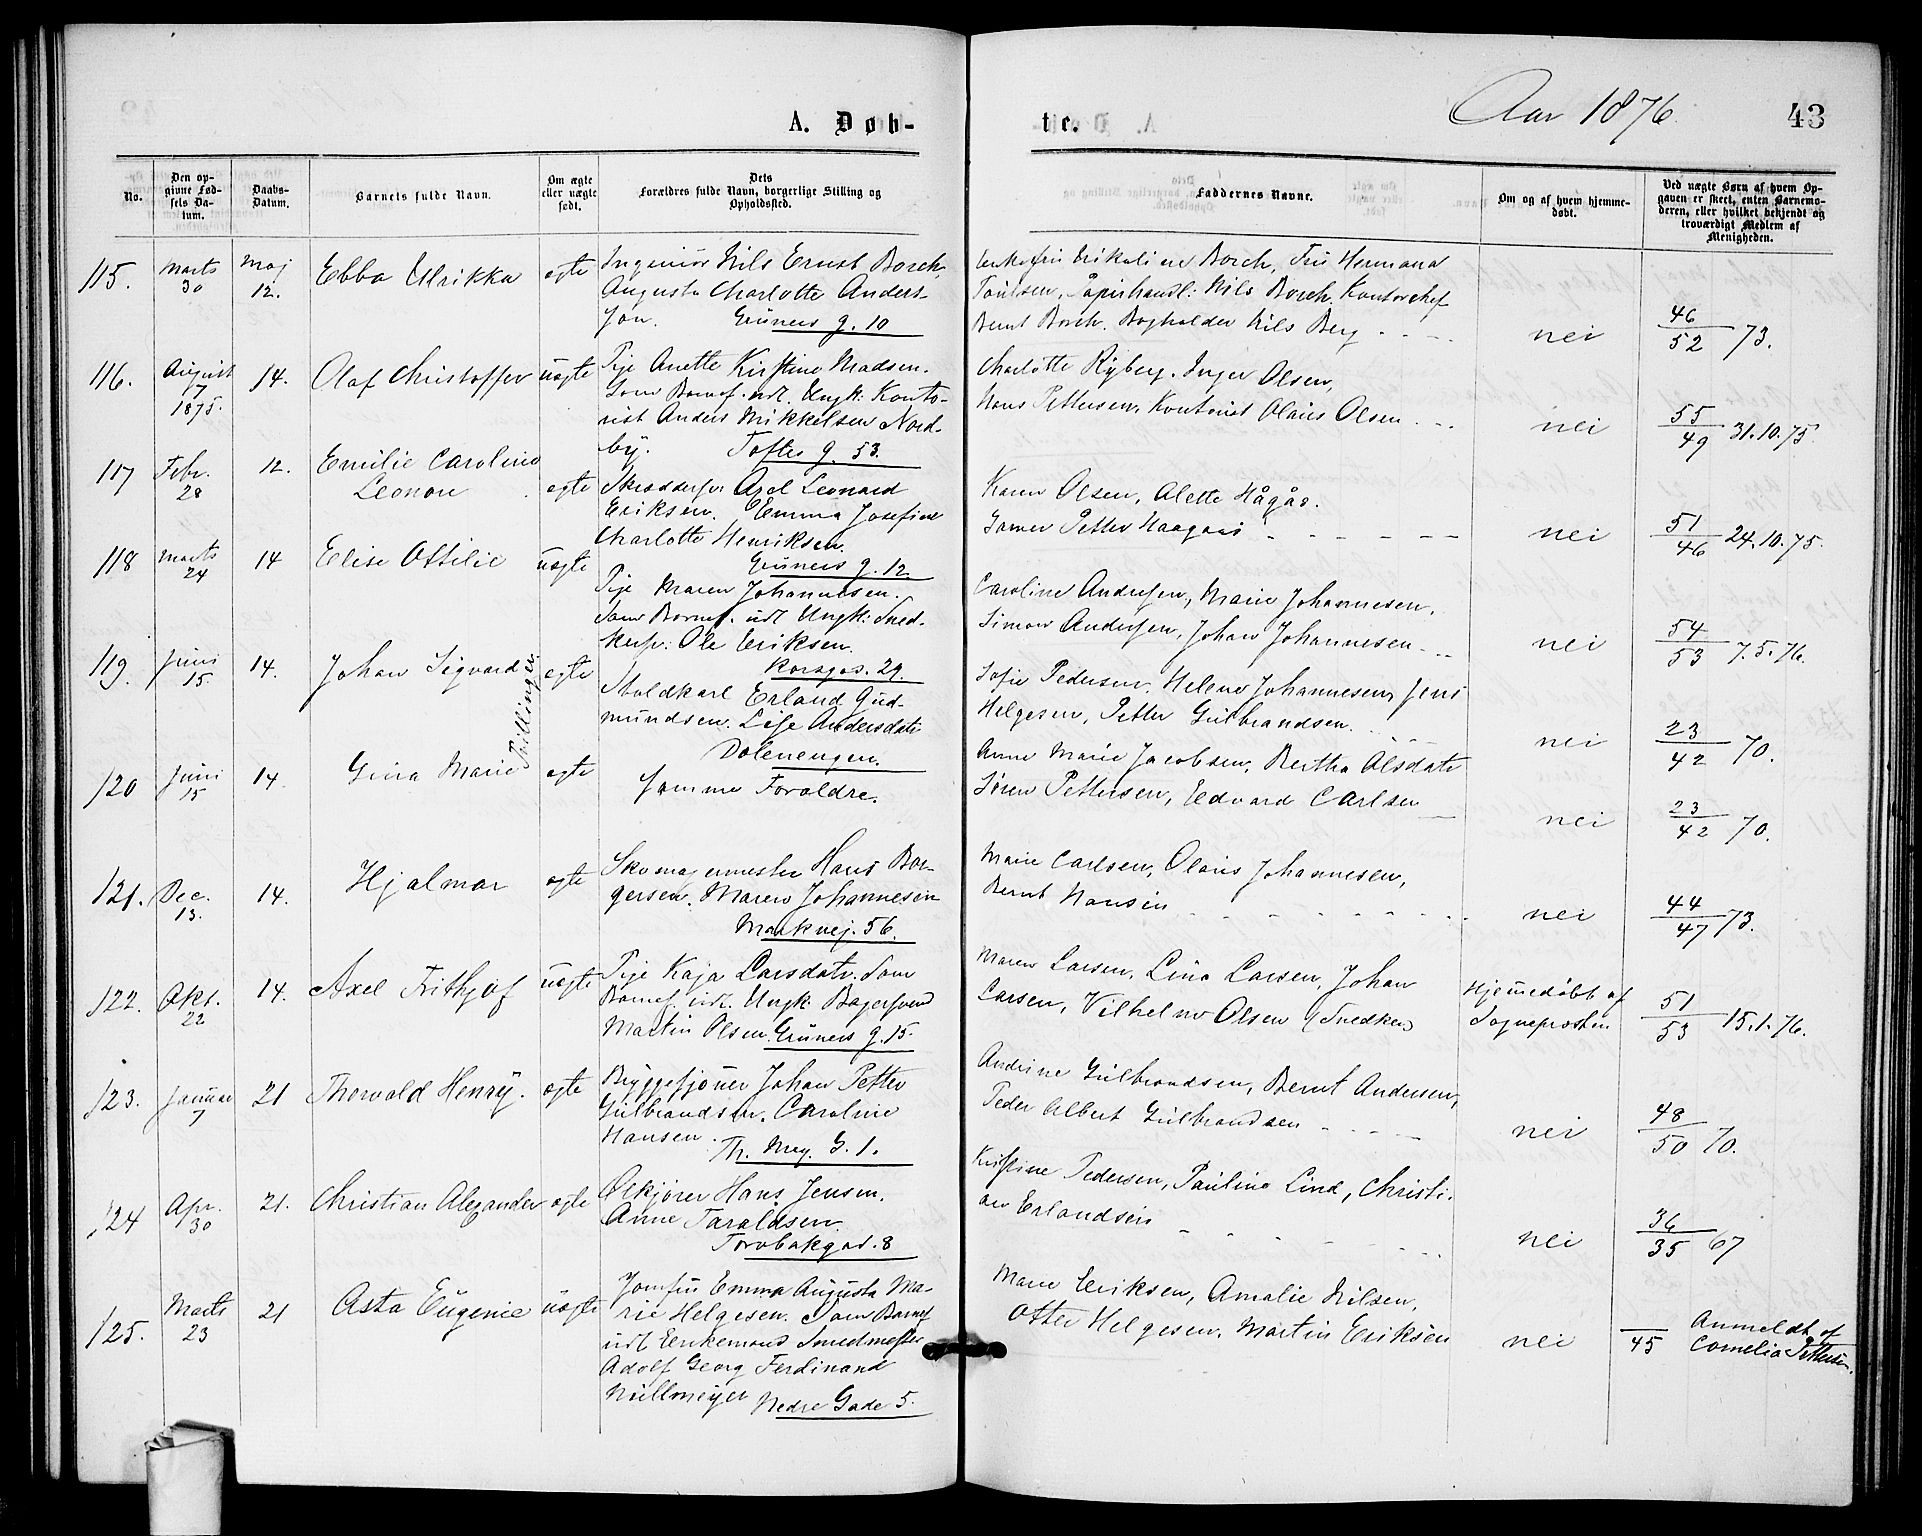 A. Døb-
te.
Aar 1876.
43
No.
Den op-
givne Fød-
sels Da-
tum.
Daabs-
Datum.
Barnets fulde Navn.
Om ægte
eller uægte
født.
Dets
Forældres fulde Navn, borgerlige Stilling og
Opholdssted.
Faddernes Navne.
Om og af hvem hjemme-
døbt.
Ved uægte Børn af hvem Op-
gaven er skeet, enten Barnemo-
deren, eller hvilket bekjendt og
troværdigt Medlem af
Menigheden.
115.
Marts
30
Maj
12.
Ebba Ulrikka
ægte
Ingeniør Nils Ernst Borch,
Augusta Charlotte Anders-
son.
Grüners g. 10
Enkefru Erikoline Borch, Fru Hermana
Poulsen, Papirhandl: Nils Borch. Kontorchef
Bernt Borch. Bogholder Nils Berg
nei
46
52 73.
116.
August
7
1875.
14.
Olaf Christoffer
uægte
Pige Anette Kirstine Madsen.
Som Barnef. udl. Ungk. Konto-
rist Anders Mikkelsen Nord-
by.
Toftes g. 53.
Charlotte Ryberg. Inger Olsen,
Hans Pettersen, Kontorist Olaus Olsen
nei
55
49 31.10.75.
117
Febr.
28
12.
Emilie Caroline
Leonore
ægte
Skræddersv. Axel Leonard
Eriksen. Emma Josefine
Charlotte Henriksen.
Grüners g. 12.
Karen Olsen, Alette Hågås.
Gamer Petter Haagaas
nei
51
46 24.10.75.
118
Marts
24
14
Elise Ottilie
uægte
Pige Maren Johannesen.
Som Barnef. udl Ungk: Sned-
kersv. Ole Eriksen.
Korsgad. 29.
Caroline Andersen, Marie Johannesen.
Simon Andersen, Johan Johannesen
nei
54
53 7.5.76.
119.
Juni
15.
14.
Johan Sigvard
Tvillinger
ægte
Staldkarl Erland Gud-
mundsen. Lise Andersdatr
Dælenengen.
Sofie Pedersen. Helene Johannesen, Jens
Helgesen, Petter Gulbrandsen.
nei
23
42 70.
120
Juni
15
14.
Gina Marie
ægte
Samme Forældre.
Anne Marie Jacobsen, Bertha Olsdatr
Søren Pettersen, Edvard Carlsen
nei
23
42 70.
121.
Dec.
13.
14.
Hjalmar
ægte
Skomagermester Hans Bor-
gersen. Maren Johannesen
Markvej. 56.
Marie Carlsen, Olaus Johannesen,
Bernt Hansen
nei
44
47 73.
122.
Okt.
22
14.
Axel Frithjof
uægte
Pige Kaja Larsdatr. Som
Barnef. udl. Ungk. Bagersvend
Martin Olsen. Grüners g. 15.
Maren Larsen, Lina Larsen, Johan
Larsen, Vilhelm Olsen (Snedker)
Hjemedøbt af
Sogneprosten.
51
53 15.1.76.
123.
Januar
7
21
Thorvald Henry.
ægte
Bryggesjouer Johan Petter
Gulbrandsen. Caroline
Hansen.
Th. Mey. G. 1.
Andrine Gulbrandsen, Bernt Andersen,
Peder Albert Gulbrandsen
nei
48
50 70.
124
Apr.
30
21.
Christian Alexander
ægte
Ølkjører Hans Jensen.
Anne Taraldsen.
Torvbakgad. 8
Kirstine Pedersen, Pauline Lind, Christi-
an Erlandsen
nei
36
35 67
125.
Marts
23
21
Asta Eugenie
uægte
Jomfru Emma Augusta Ma-
rie Helgesen. Som Barnef
udl Enkemand Smedmester
Adolf Georg Ferdinand
Müllmeyer
Nedre Gade 5.
Marie Eriksen, Amalie Nilsen,
Otter Helgesen. Martin Eriksen
nei
45
Anmeldt af
Cornelia Pettersen.